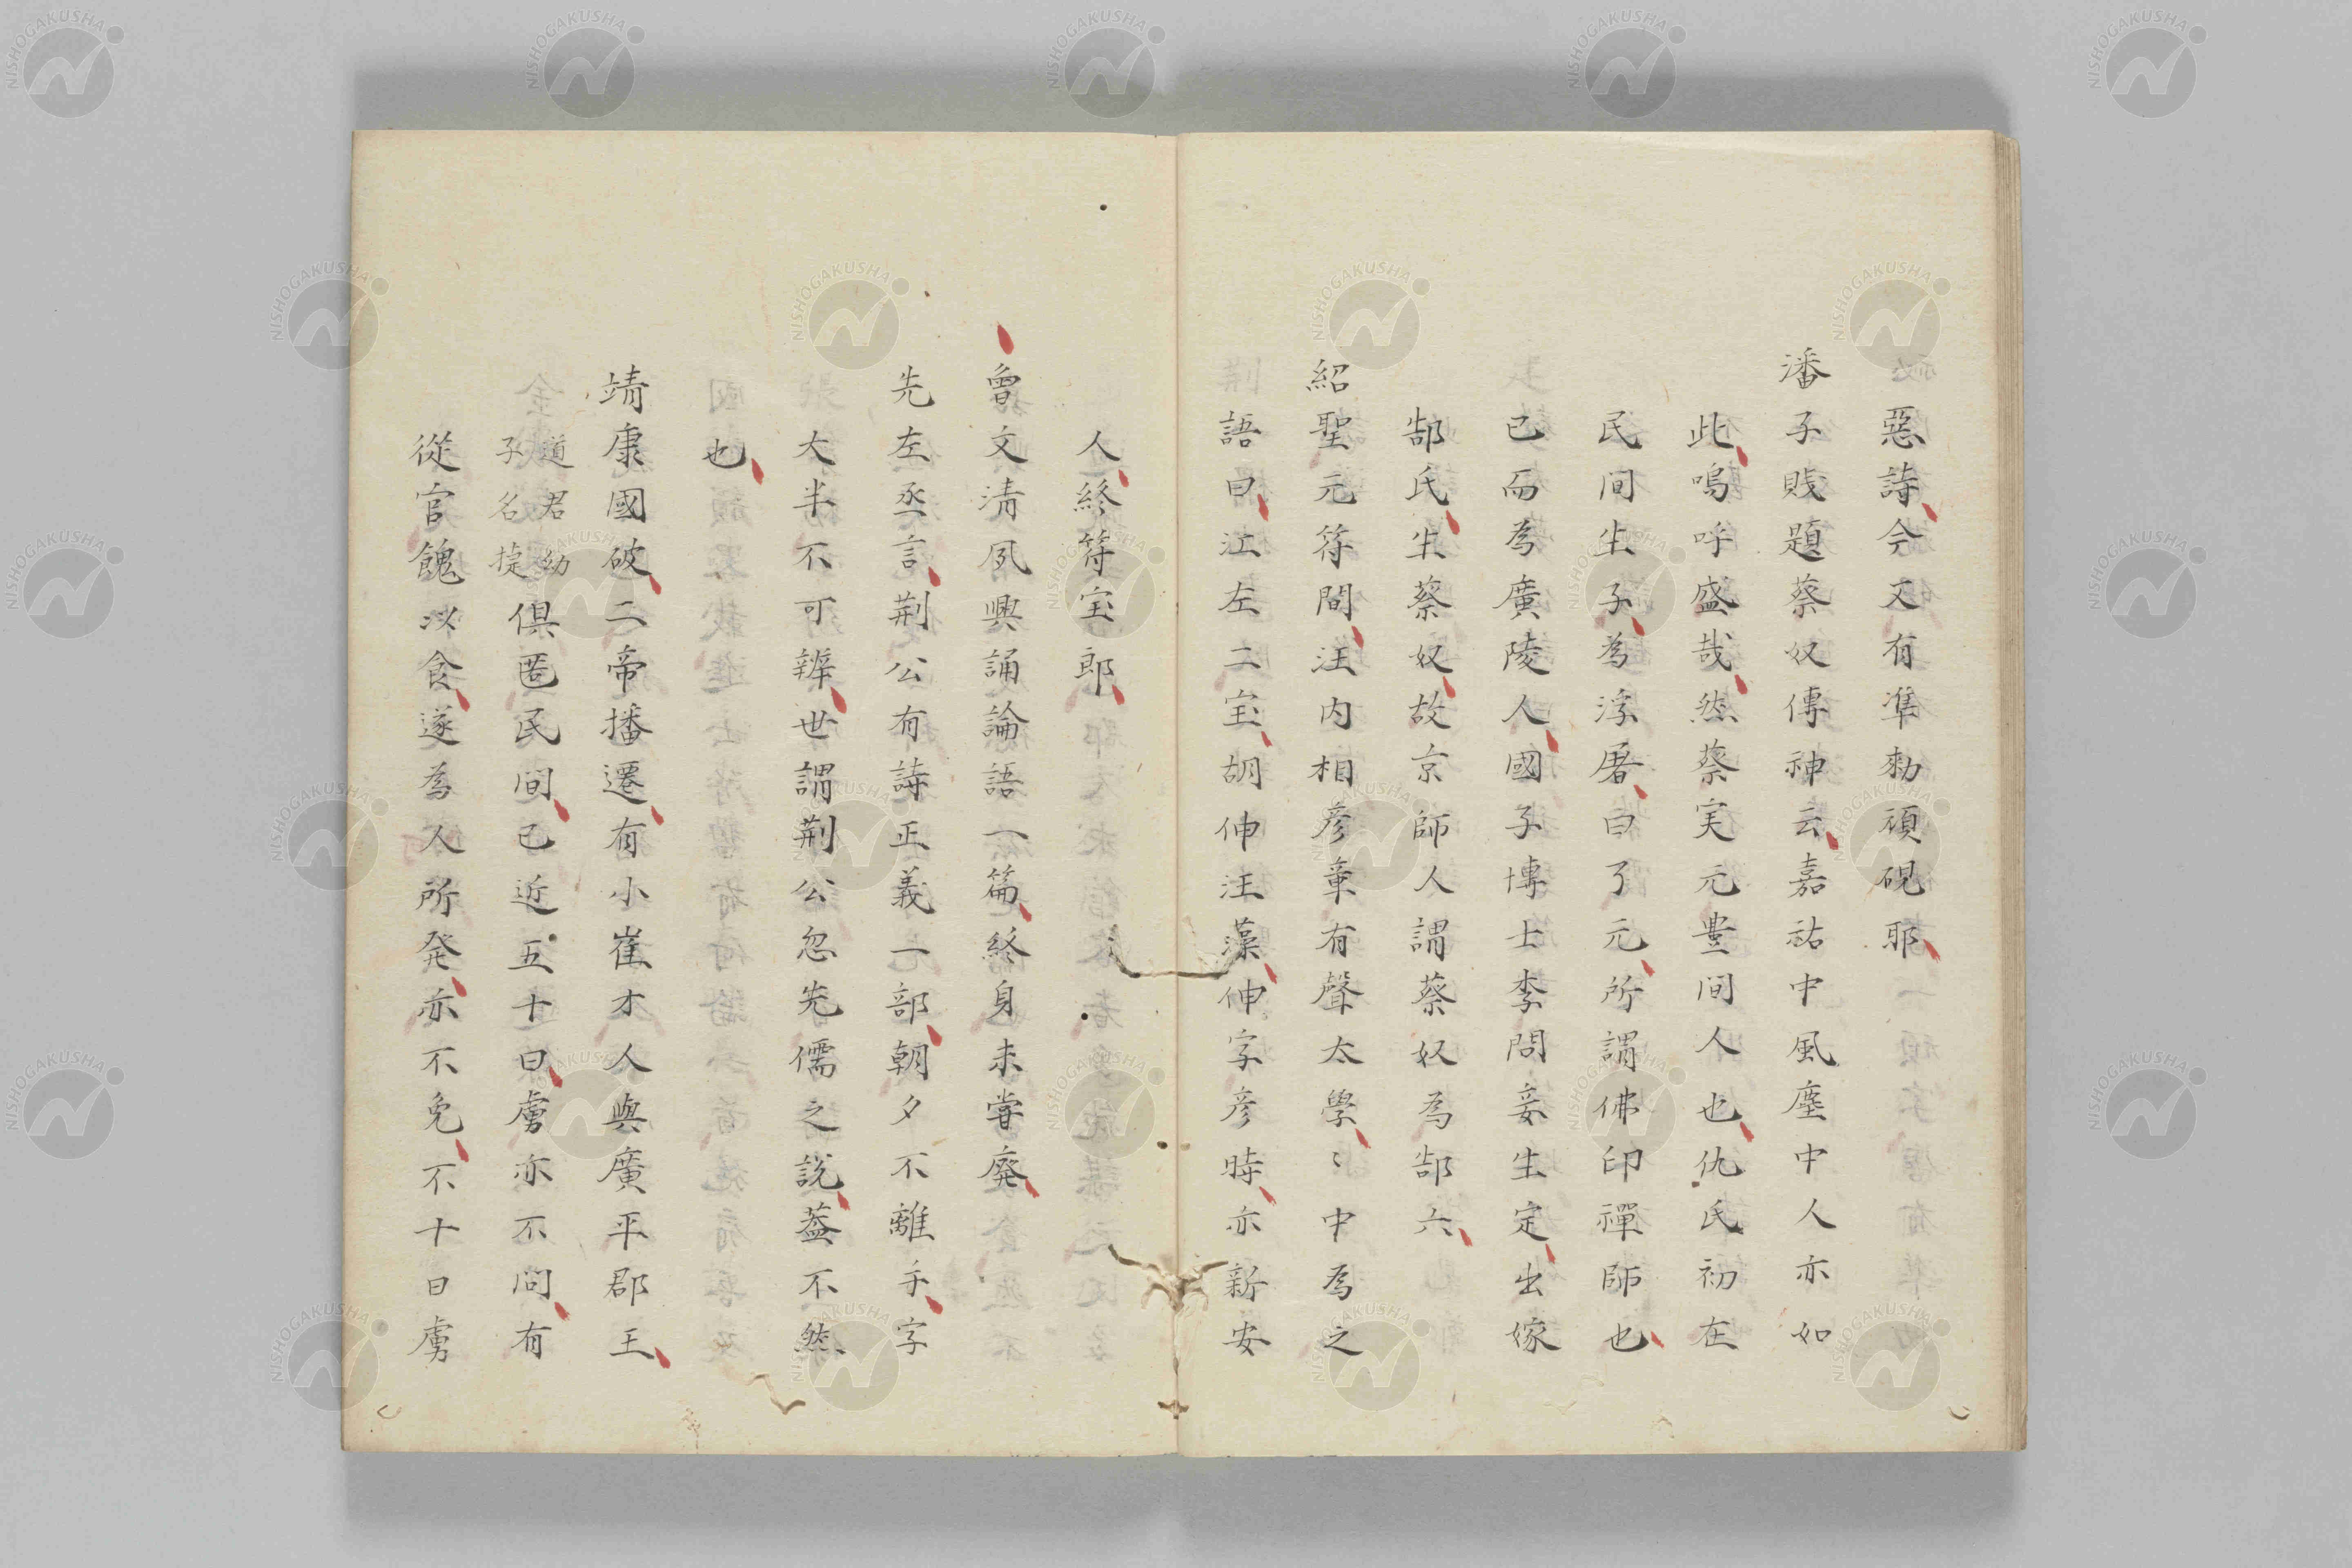 惡詩今又有準勅頑硯耶
潘子賎題蔡奴傳神云嘉祐中風塵中人亦如
此嗚呼盛哉然蔡実元豊间人也仇氏初在
民间生子為浮屠曰了元所謂佛印禪師也
已而為廣陵人國子博士李問妾生定出嫁
郜氏生蔡奴故京師人謂蔡奴為郜六
紹聖元符間汪内相彦章有聲太學〻中為之
語曰江左二宝胡伸汪藻伸字彦時亦新安
人終符宝郎
曾文清夙興誦論語一篇終身未甞廃
先左丞言荆公有詩正義一部朝夕不離手字
大半不可辨世謂荆公忽先儒之說蓋不然
也
靖康國破二帝播遷有小崔才人與廣平郡王
道君幼子名㨗俱匿民间已近五十日虜亦不问有
從官餽以食遂為人所発亦不免不十日虜
NISHOGAKUSHA